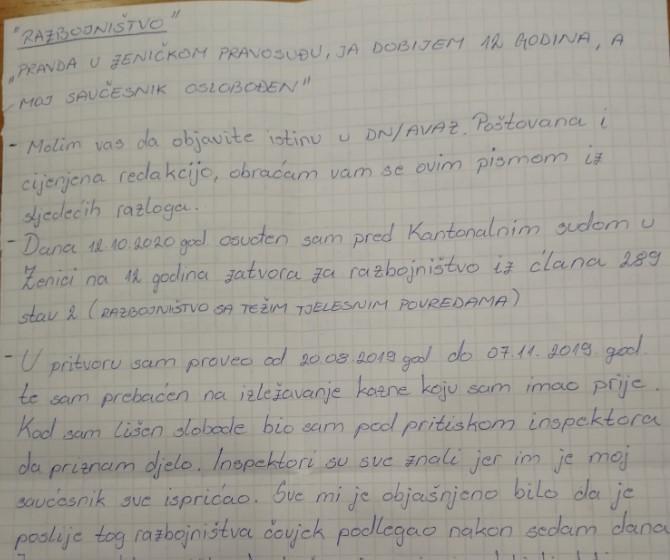 "RAZBOJNIŠTVO"
"PRAVDA U ZENIČKOM PRAVOSUĐU, JA DOBIJEM 12 GODINA, A
MOJ SAUČESNIK OSLOBOĐEN"
- Molim vas da objavite istinu u DN/AVAZ. Poštovana i
cijenjena redakcijo, obraćam vam se ovim pismom iz
sljedećih razloga.
- Dana 12.10.2020 god osuđen sam pred Kantonalnim sudom u
Zenici na 12 godina zatvora za razbojništvo iz člana 289
stav 2 (RAZBOJNIŠTVO SA TEŽIM TJELESNIM POVREDAMA)
- U pritvoru sam proveo od 20.08.2019 god do 07.11.2019 god.
te sam prebačen na izležavanje kazne koju sam imao prije.
Kad sam lišen slobode bio sam pod pritiskom inspektora
da priznam djelo. Inspektori su sve znali jer im je moj
saučesnik sve ispričao. Sve mi je objašnjeno bilo da je
poslije tog razbojništva čovjek podlegao nakon sedam dana